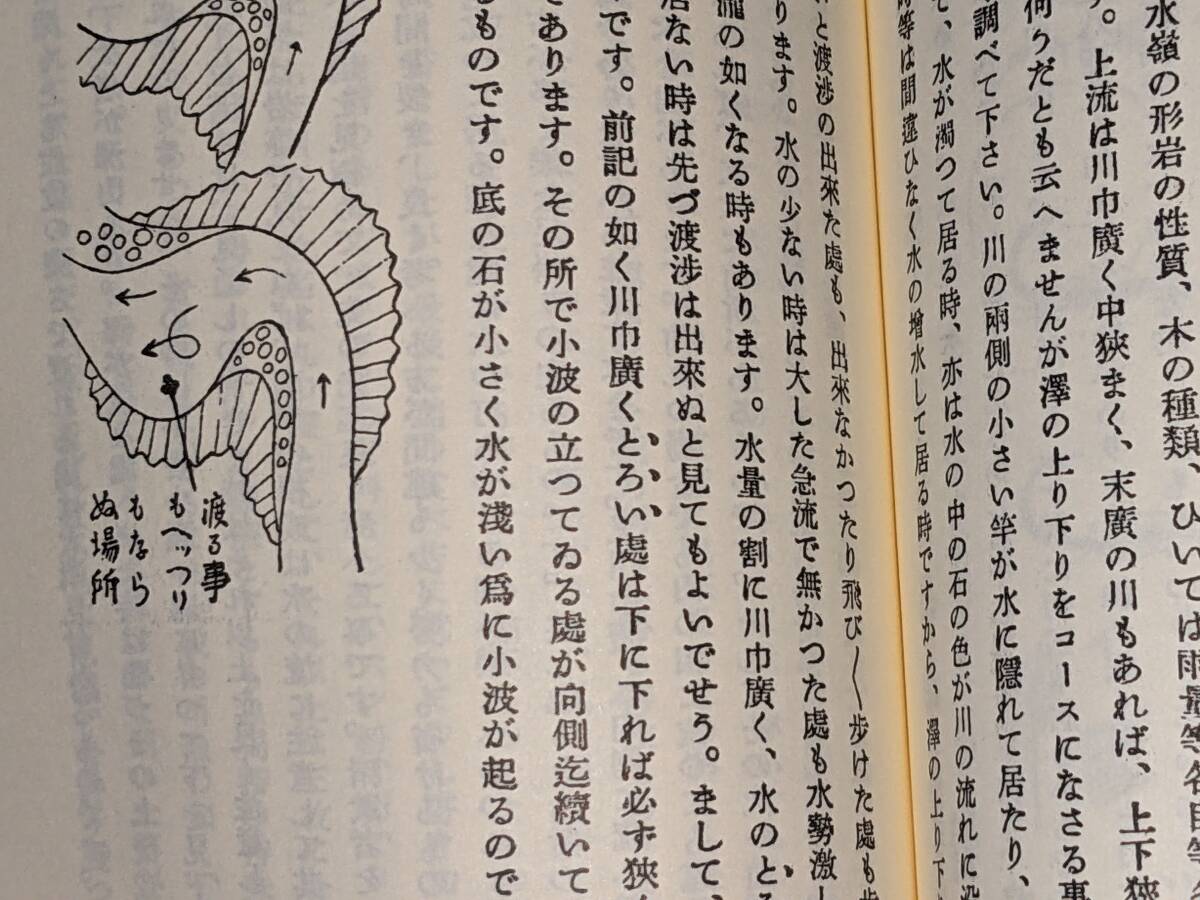 水嶺の形岩の性質、木の種類、ひいては雨量等各自等
す。上流は川巾廣く中狹まく、末廣の川もあれば、上下狹
何うだとも云へませんが澤の上り下りをコースになさる事
調べて下さい。川の兩側の小さい竿が水に隱れて居たり、
て、水が濁つて居る時、亦は水の中の石の色が川の流れに
時等は間違ひなく水の增水して居る時ですから、澤の上り下
と渡渉の出來た處も、出來なかつたり飛び〱步けた處も
ります。水の少ない時は大した急流で無かつた處も水勢激
瀧の如くなる時もあります。水量の割に川巾廣く、水のとろ
居ない時は先づ渡渉は出來ぬと見てもよいでせう。まして、
です。前記の如く川巾廣くとろい處は下に下れば必ず狹
であります。その所で小波の立つてゐる處が向側迄續いて
るものです。底の石が小さく水が淺い爲に小波が起るので
渡る事
もヘッツリ
もなら
ぬ場所